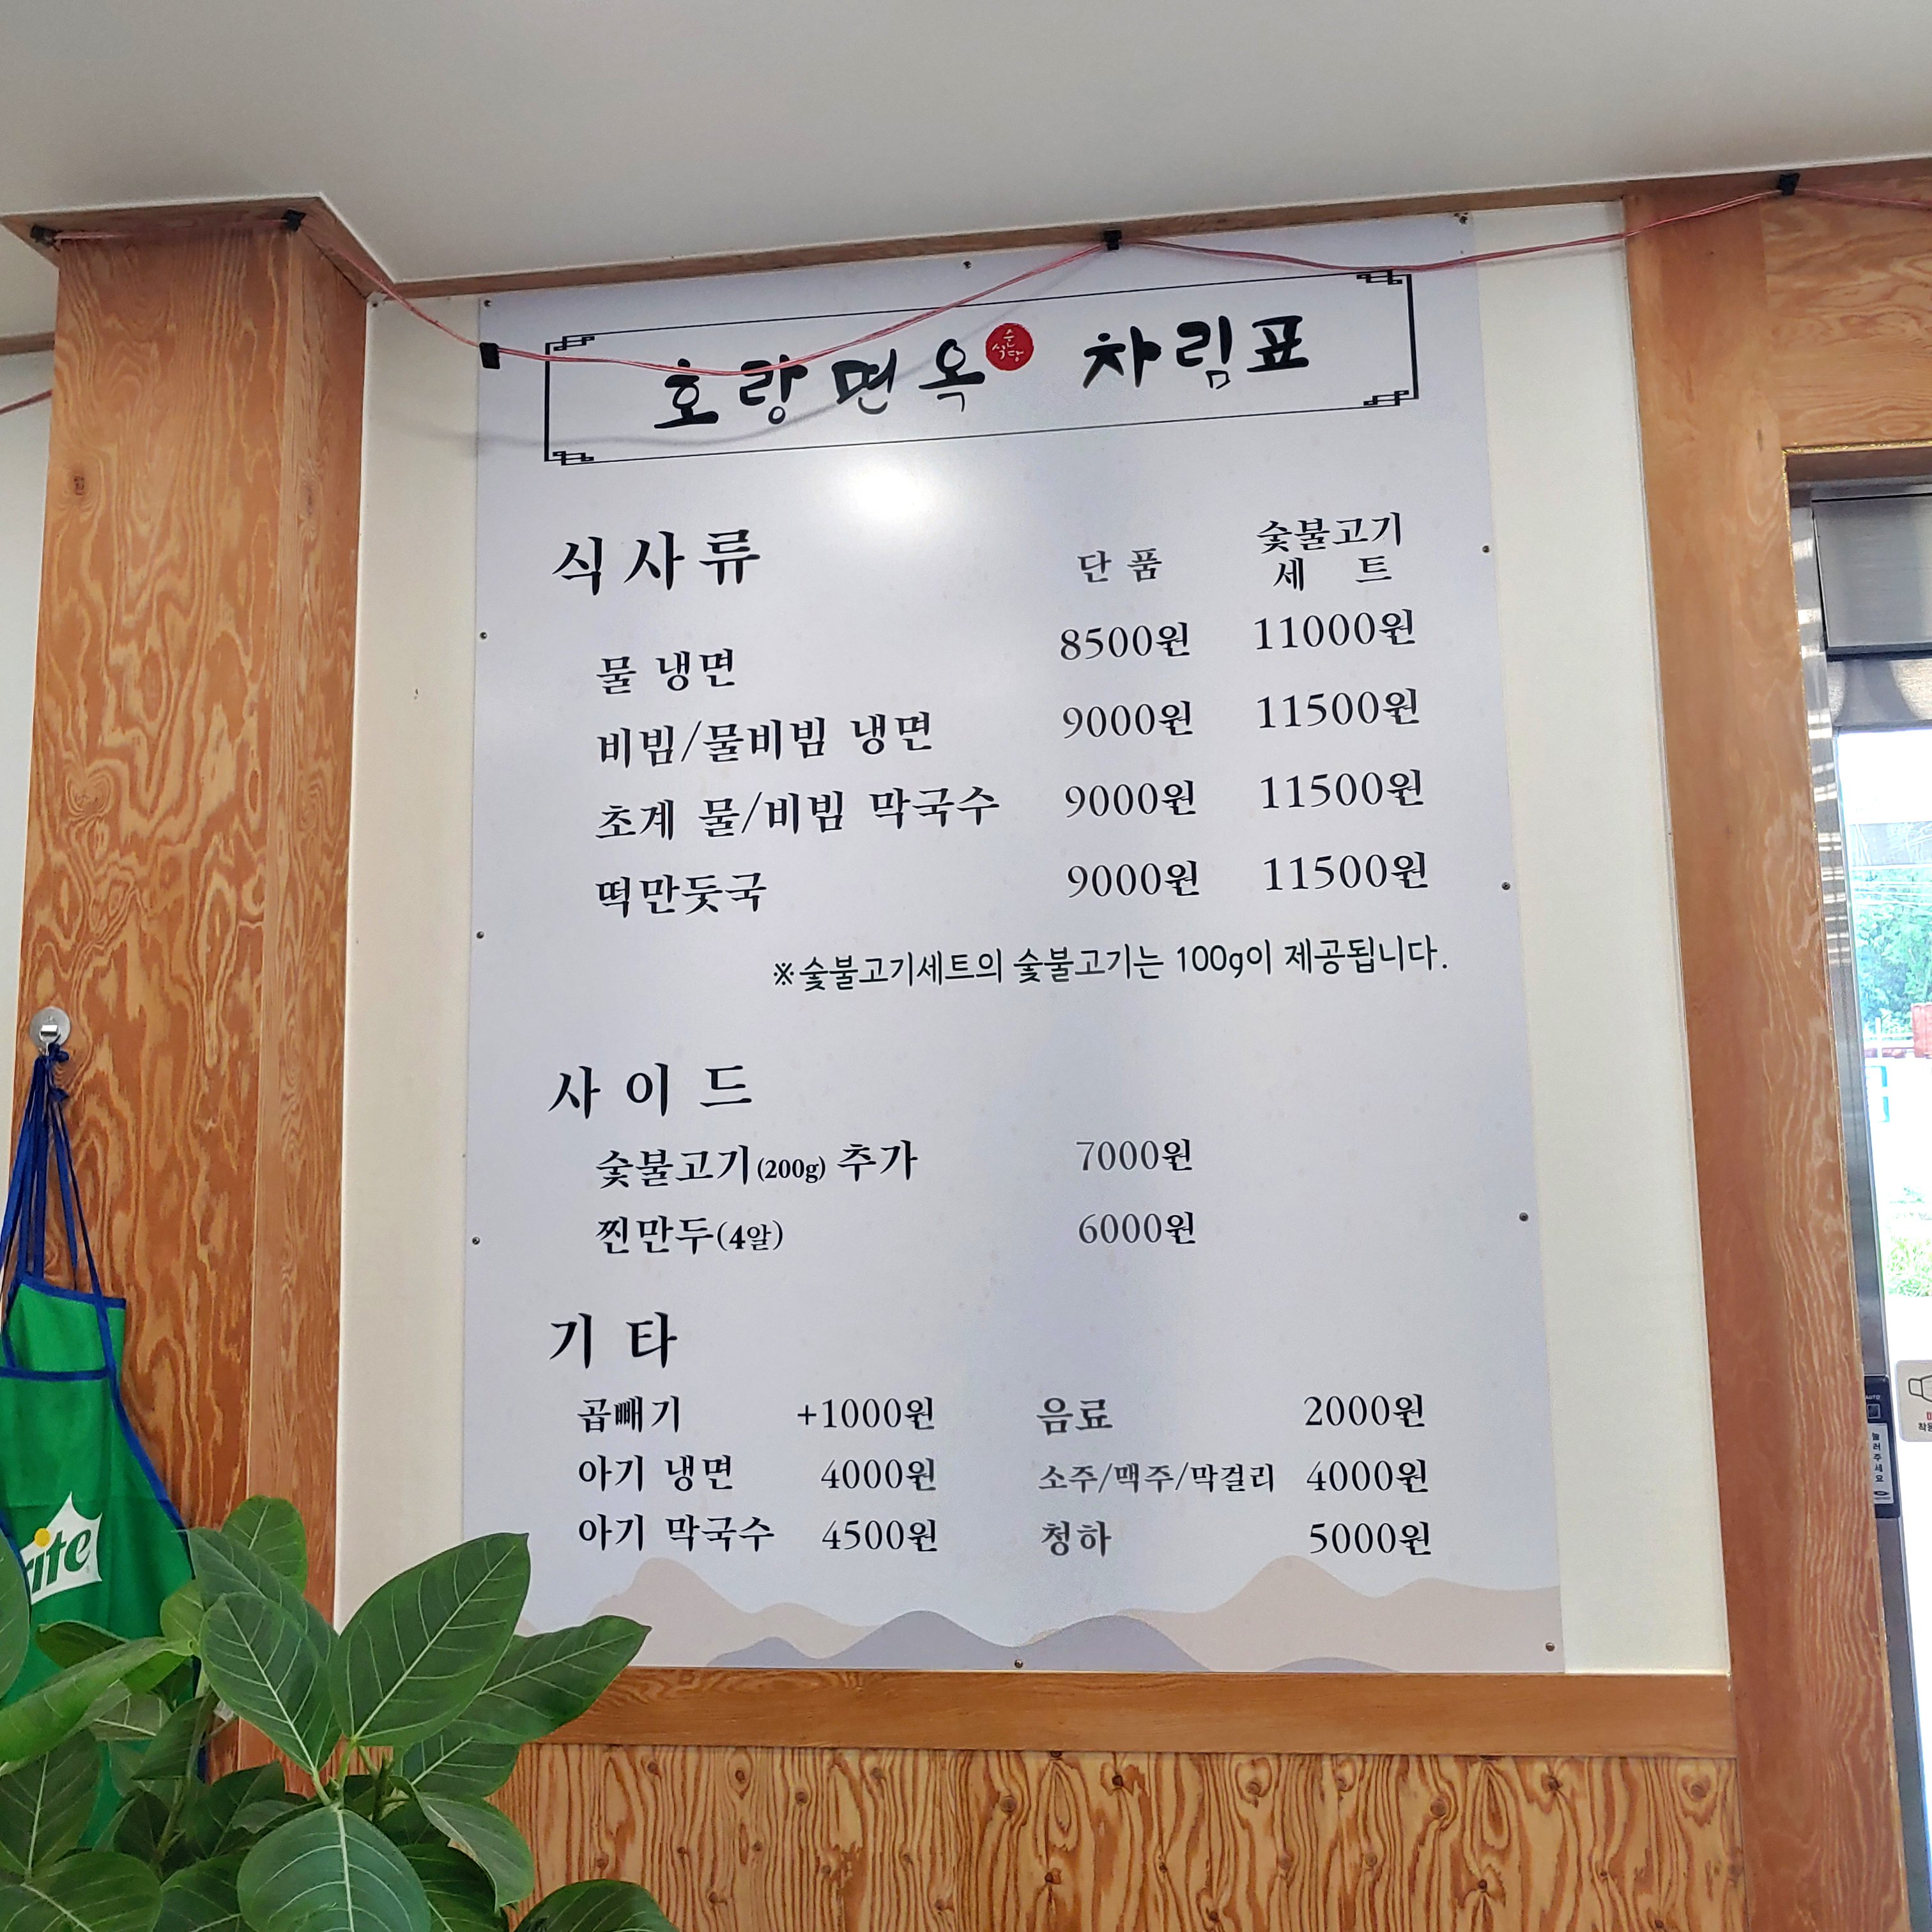 호랑면옥 순식당 차림표
식사류 단품 숯불고기 세트
물 냉면 8500원 11000원
비빔/물비빔 냉면 9000원 11500원
초계 물/비빔 막국수 9000원 11500원
떡만둣국 9000원 11500원
※숯불고기세트의 숯불고기는 100g이 제공됩니다.
사이드
숯불고기(200g) 추가 7000원
찐만두(4알) 6000원
기타
곱빼기 +1000원 음료 2000원
아기 냉면 4000원 소주/맥주/막걸리 4000원
아기 막국수 4500원 청하 5000원
눌러주세요